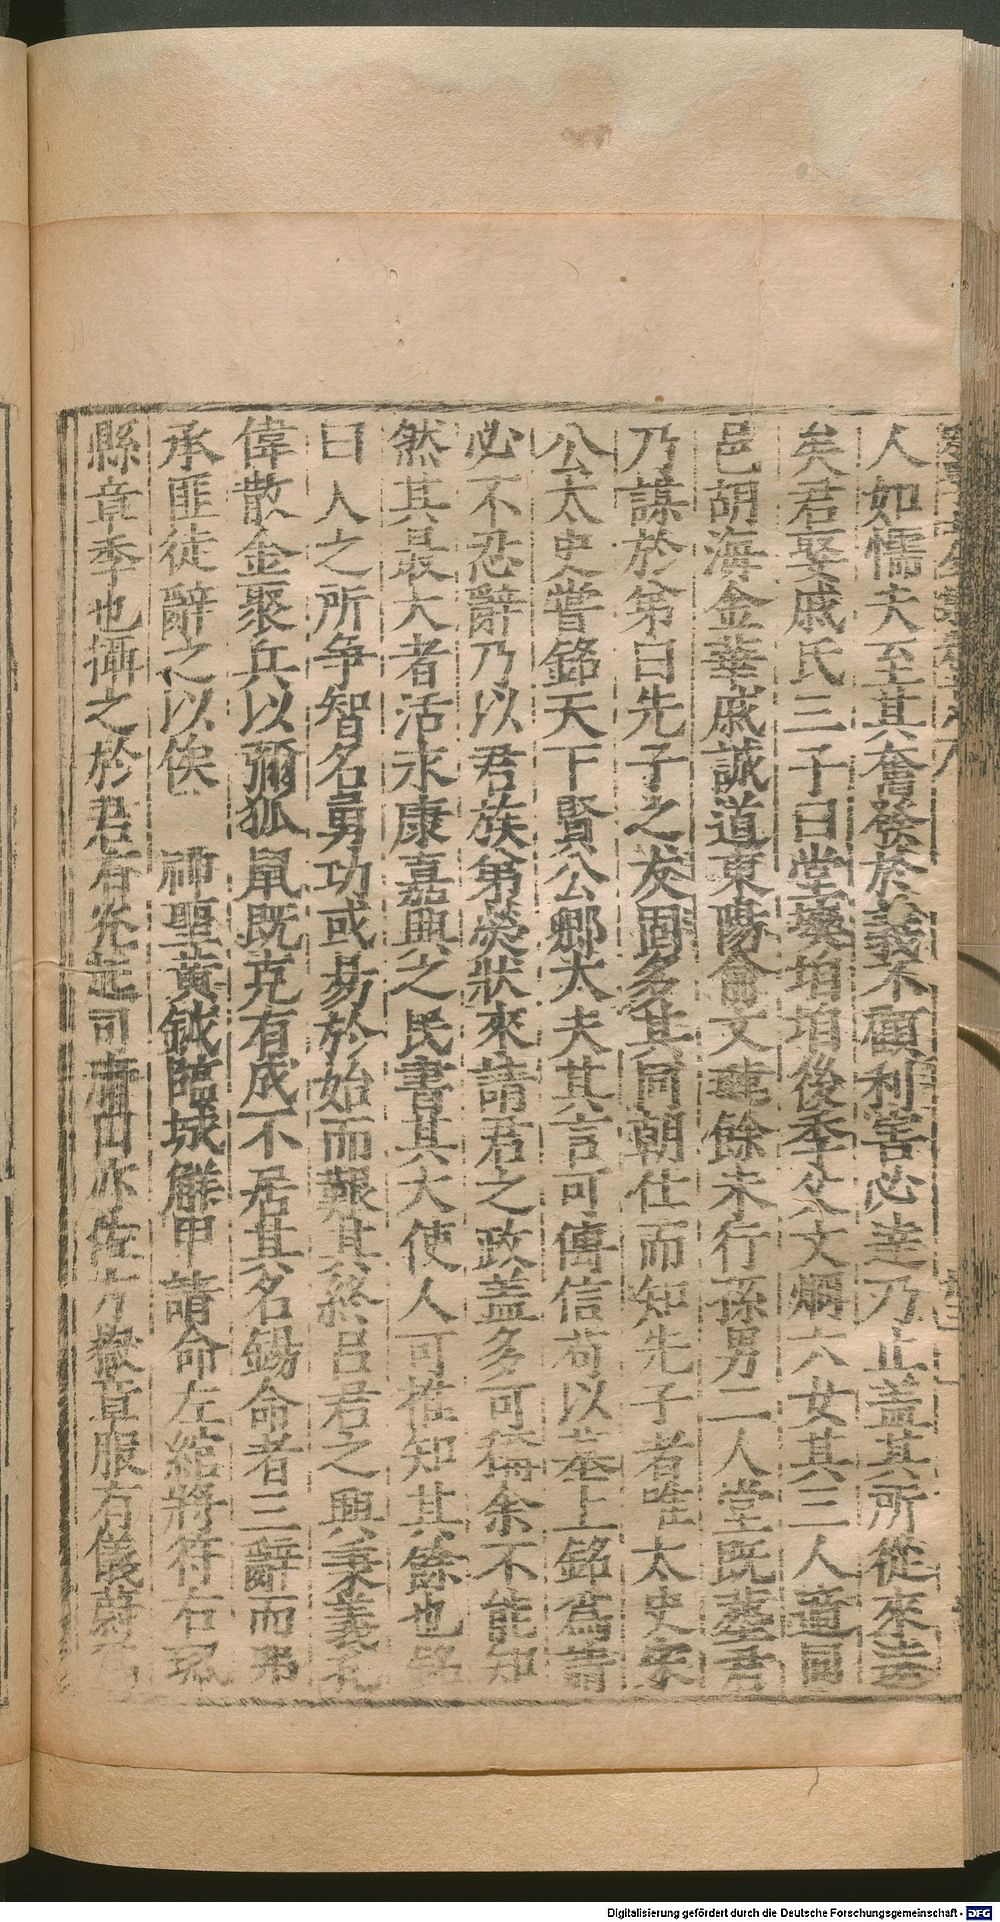 人如懦夫至其奮發於義不顧利害必達乃止蓋其所從來遠
矣君娶戚氏三子曰堂㙔垍垍後季父文烱六女其三人適同
邑胡海金華戚誠道東陽俞文瑋餘未行孫男二人堂既塟君
乃謀於弟曰先子之友固多其同朝仕而知先子者唯太史宋
公太史嘗銘天下賢公鄉太夫其言可傳信苟以墓上銘爲請
必不忍辭乃以君族弟熒狀來請君之政盖多可稱余不能知
然其最大者活永康嘉興之民書其大使人可推知其餘也銘
曰人之所争智名勇功或易於始而艱其終呂君之興秉義孔
偉散金聚兵以彌狐鼠既克有成不居其名錫命者三辭而弗
承匪徒辭之以俟 神聖黄鉞臨城觧甲請命左綰將符右珮
縣章季也攝之於君有光起司莆田亦佐方嶽草服有儀蔚
Digitalisierung gefördert durch die Deutsche Forschungsgemeinschaft - DFG